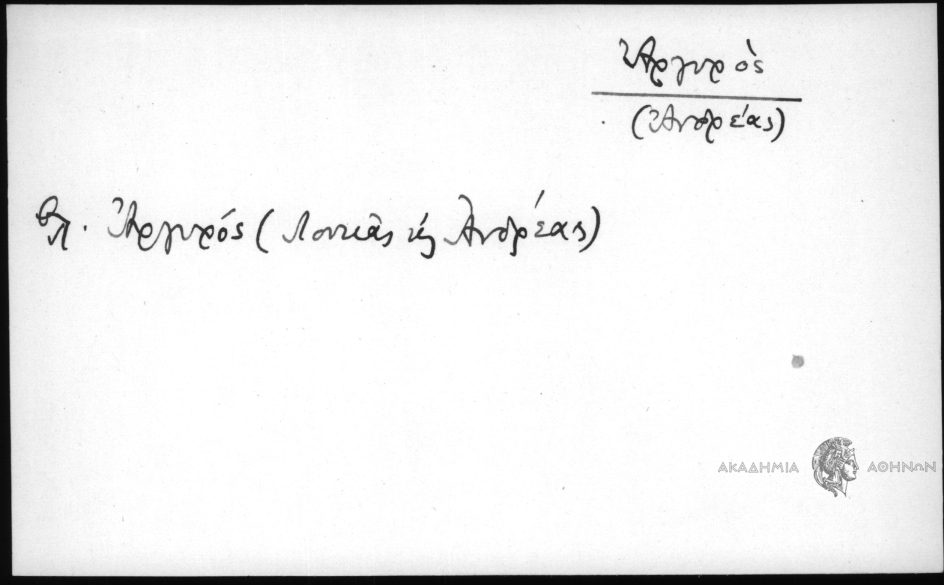 Ἀργυρός
(Ἀνδρέας)
βλ. Ἀργυρός (Λουκᾶς ἢ Ἀνδρέας)
ΑΚΑΔΗΜΙΑ ΑΘΗΝΩΝ